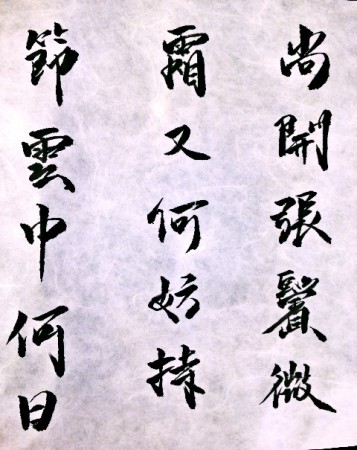 尚開張鬢微
霜又何妨持
節雲中何日